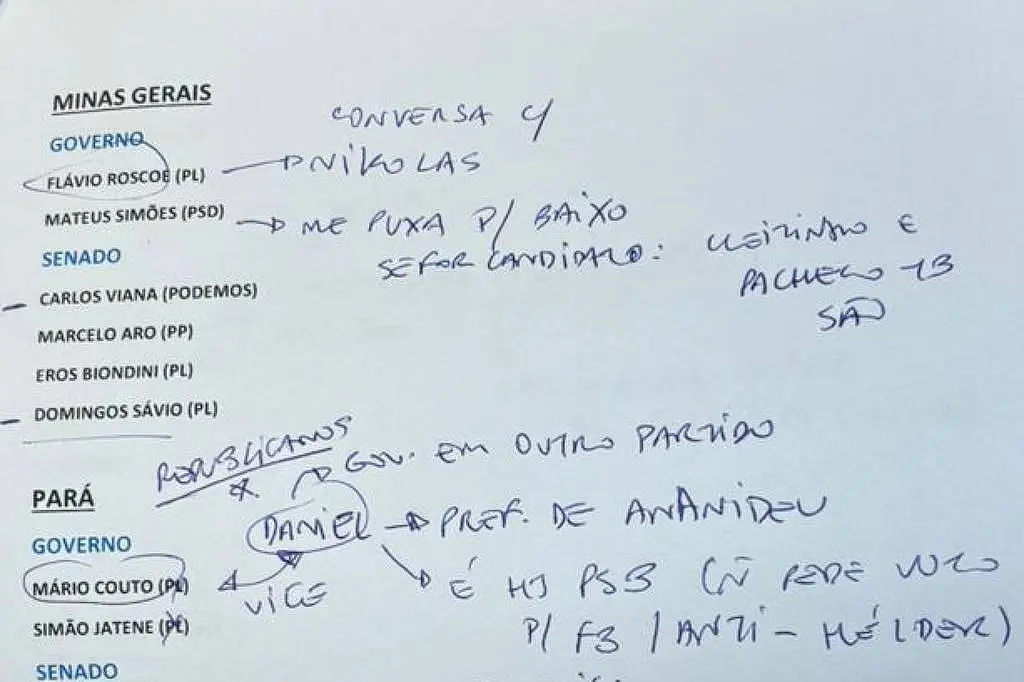 MINAS GERAIS
CONVERSA C/
GOVERNO
FLÁVIO ROSCOE (PL) → NIKOLAS
MATEUS SIMÕES (PSD) → ME PUXA P/ BAIXO
SENADO
SE FOR CANDIDATO: CLEITINHO E
PACHECO
SÃO
CARLOS VIANA (PODEMOS)
MARCELO ARO (PP)
EROS BIONDINI (PL)
DOMINGOS SÁVIO (PL)
REPUBLICANOS
* → GOV. EM OUTRO PARTIDO
PARÁ
DANIEL → PREF. DE ANANIDEU
GOVERNO
MÁRIO COUTO (PL)
VICE
→ É HJ PSB (Ñ PEDE VOTO
SIMÃO JATENE
P/ FB / ANTI-HÉLDER)
SENADO